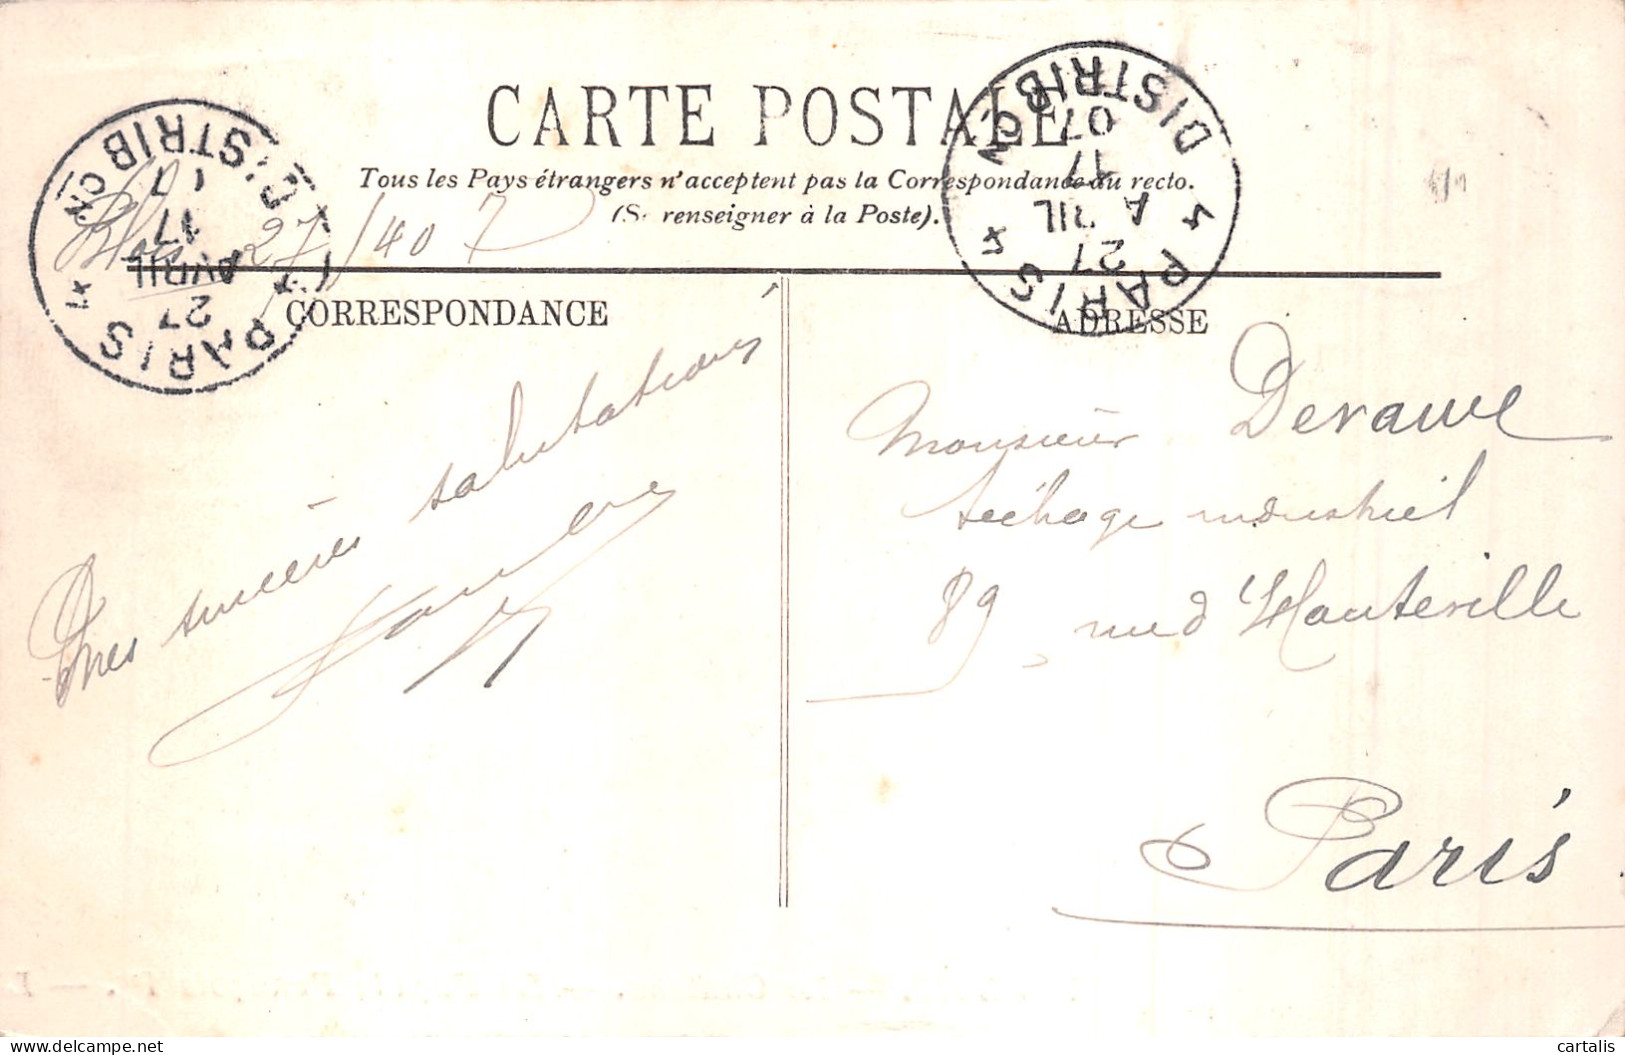 CARTE POSTALE
Tous les Pays étrangers n'acceptent pas la Correspondance au recto.
(Se renseigner à la Poste).
Blois 27/4 07
CORRESPONDANCE
ADRESSE
PARIS DISTRIBON
27
AVRIL
17
07
PARIS DISTRIBON
27
AVRIL
17
07
Mes sincères salutations
Monsieur
séchage industriel
89 rue d'Hauteville
Paris
cartalis